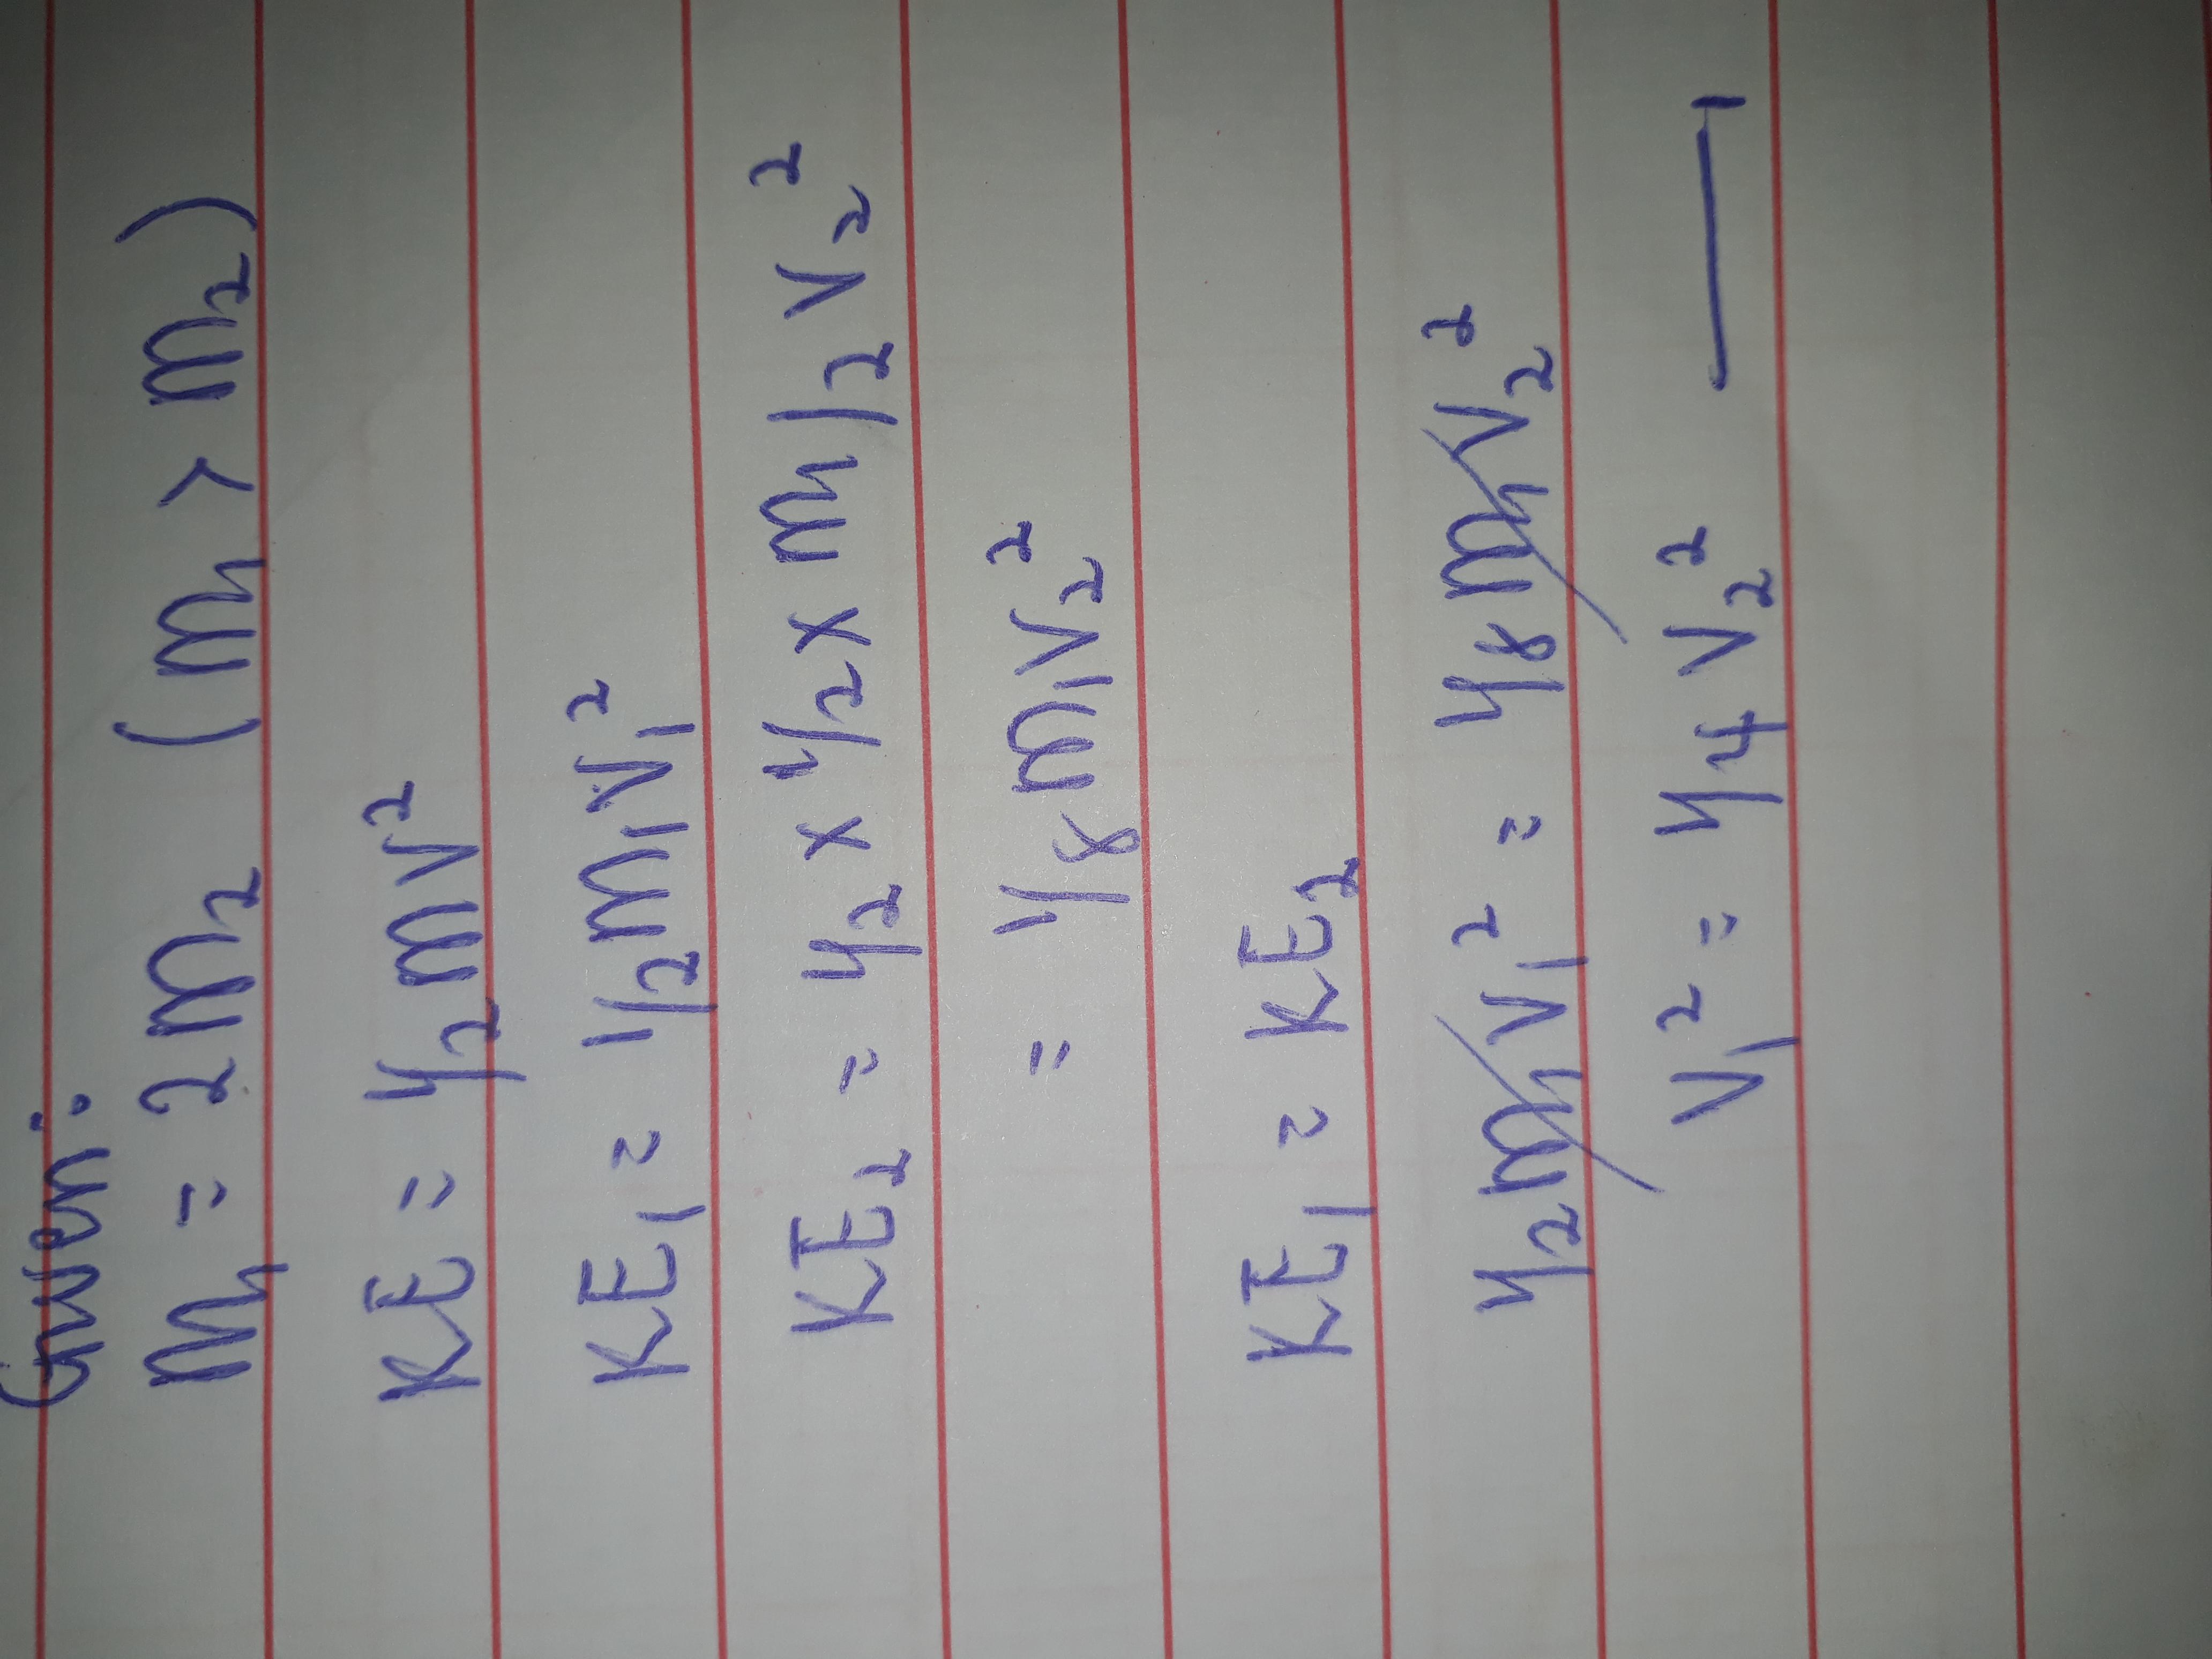 Given:
m₁ = 2m₂ (m₁ > m₂)
KE = 1/2 mv²
KE₁ = 1/2 m₁v₁²
KE₂ = 1/2 x 1/2 x m₁/2 v₂²
= 1/8 m₁v₂²
KE₁ = KE₂
1/2 m₁v₁² = 1/8 m₁v₂²
v₁² = 1/4 v₂² — 1